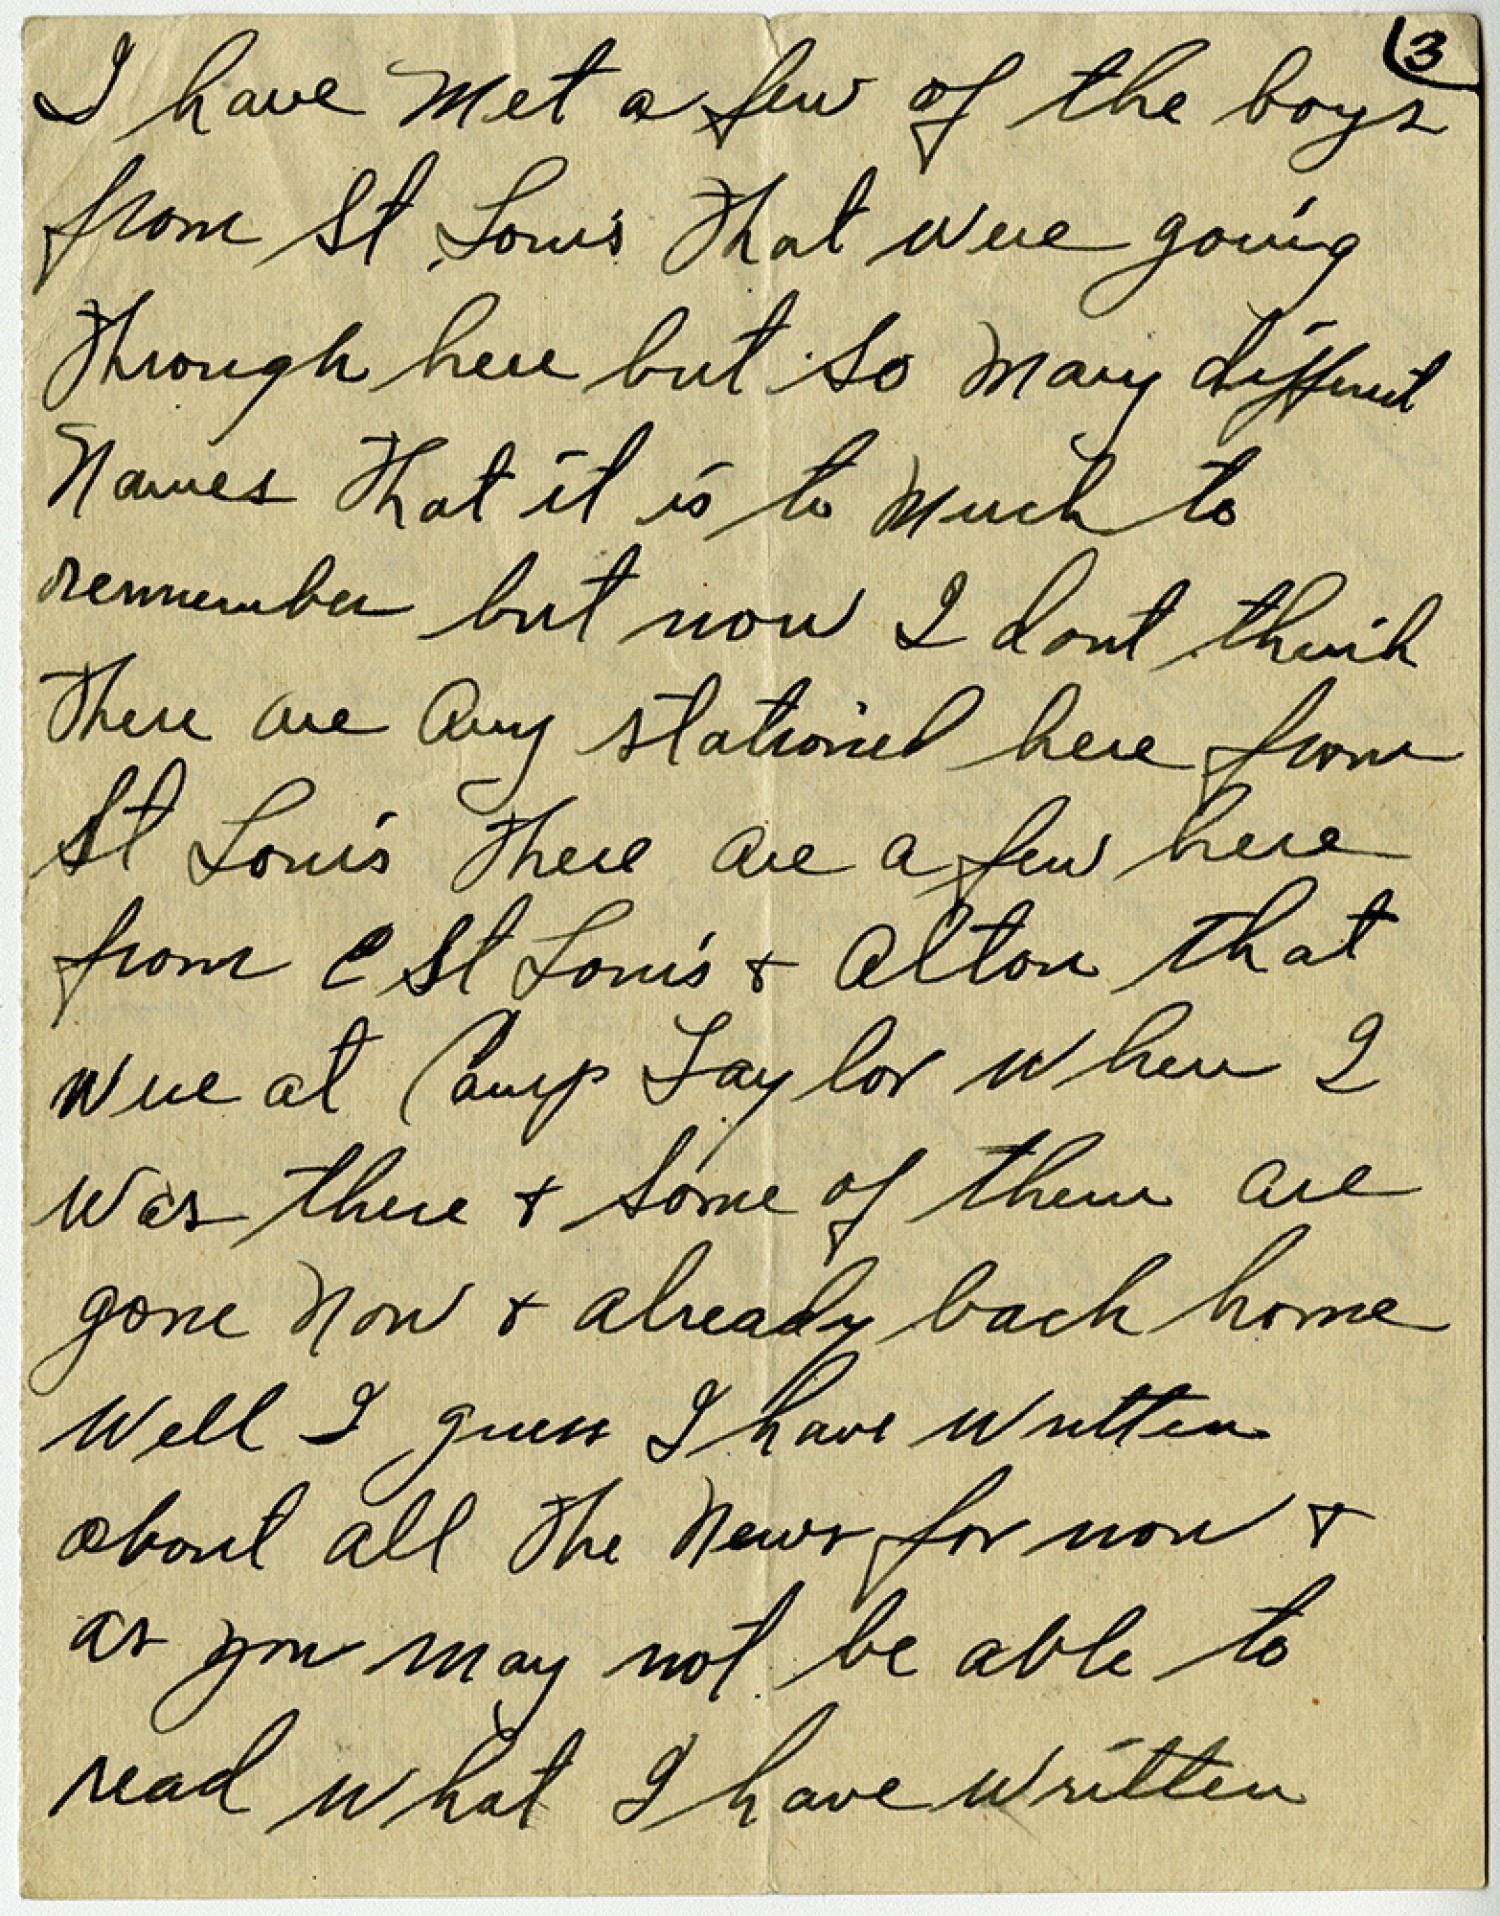 3
I have met a few of the boys
from St Louis that were going
through here but so many different
names that it is to much to
remember but now I dont think
there are any stationed here from
St Louis there are a few here
from E St Louis & Alton that
were at Camp Taylor when I
was there & some of them are
gone now & already back home
Well I guess I have written
about all the news for now &
as you may not be able to
read what I have written